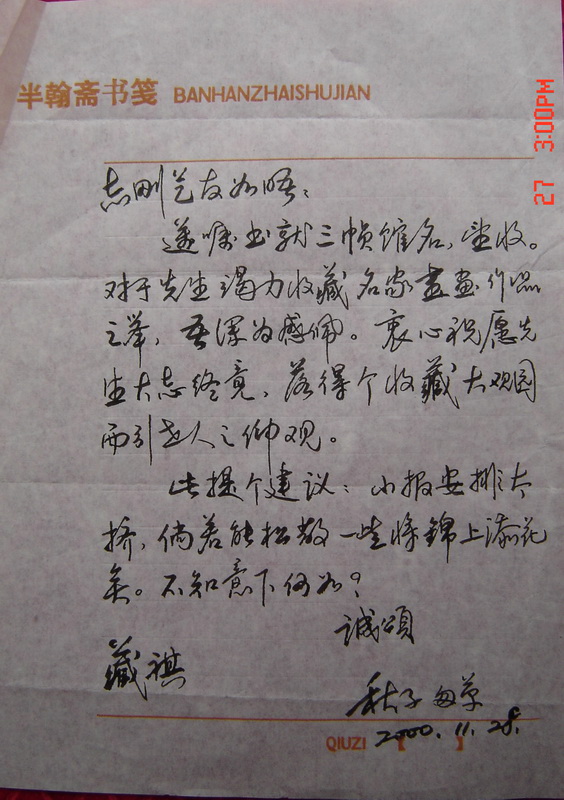 半翰斋书笺 BANHANZHAISHUJIAN
27 3:00PM
志刚艺友如晤：
遵嘱书就三帧馆名，望收。
对于先生竭力收藏名家书画作品
之举，吾深为感佩。衷心祝愿先
生大志终竟，落得个收藏大观园
而引世人之仰观。
此提个建议：小报安排太
挤，倘若能松散一些将锦上添花
矣。不知意下何如？
诚颂
藏祺
秋子匆草
2000.11.28.
QIUZI 【 】